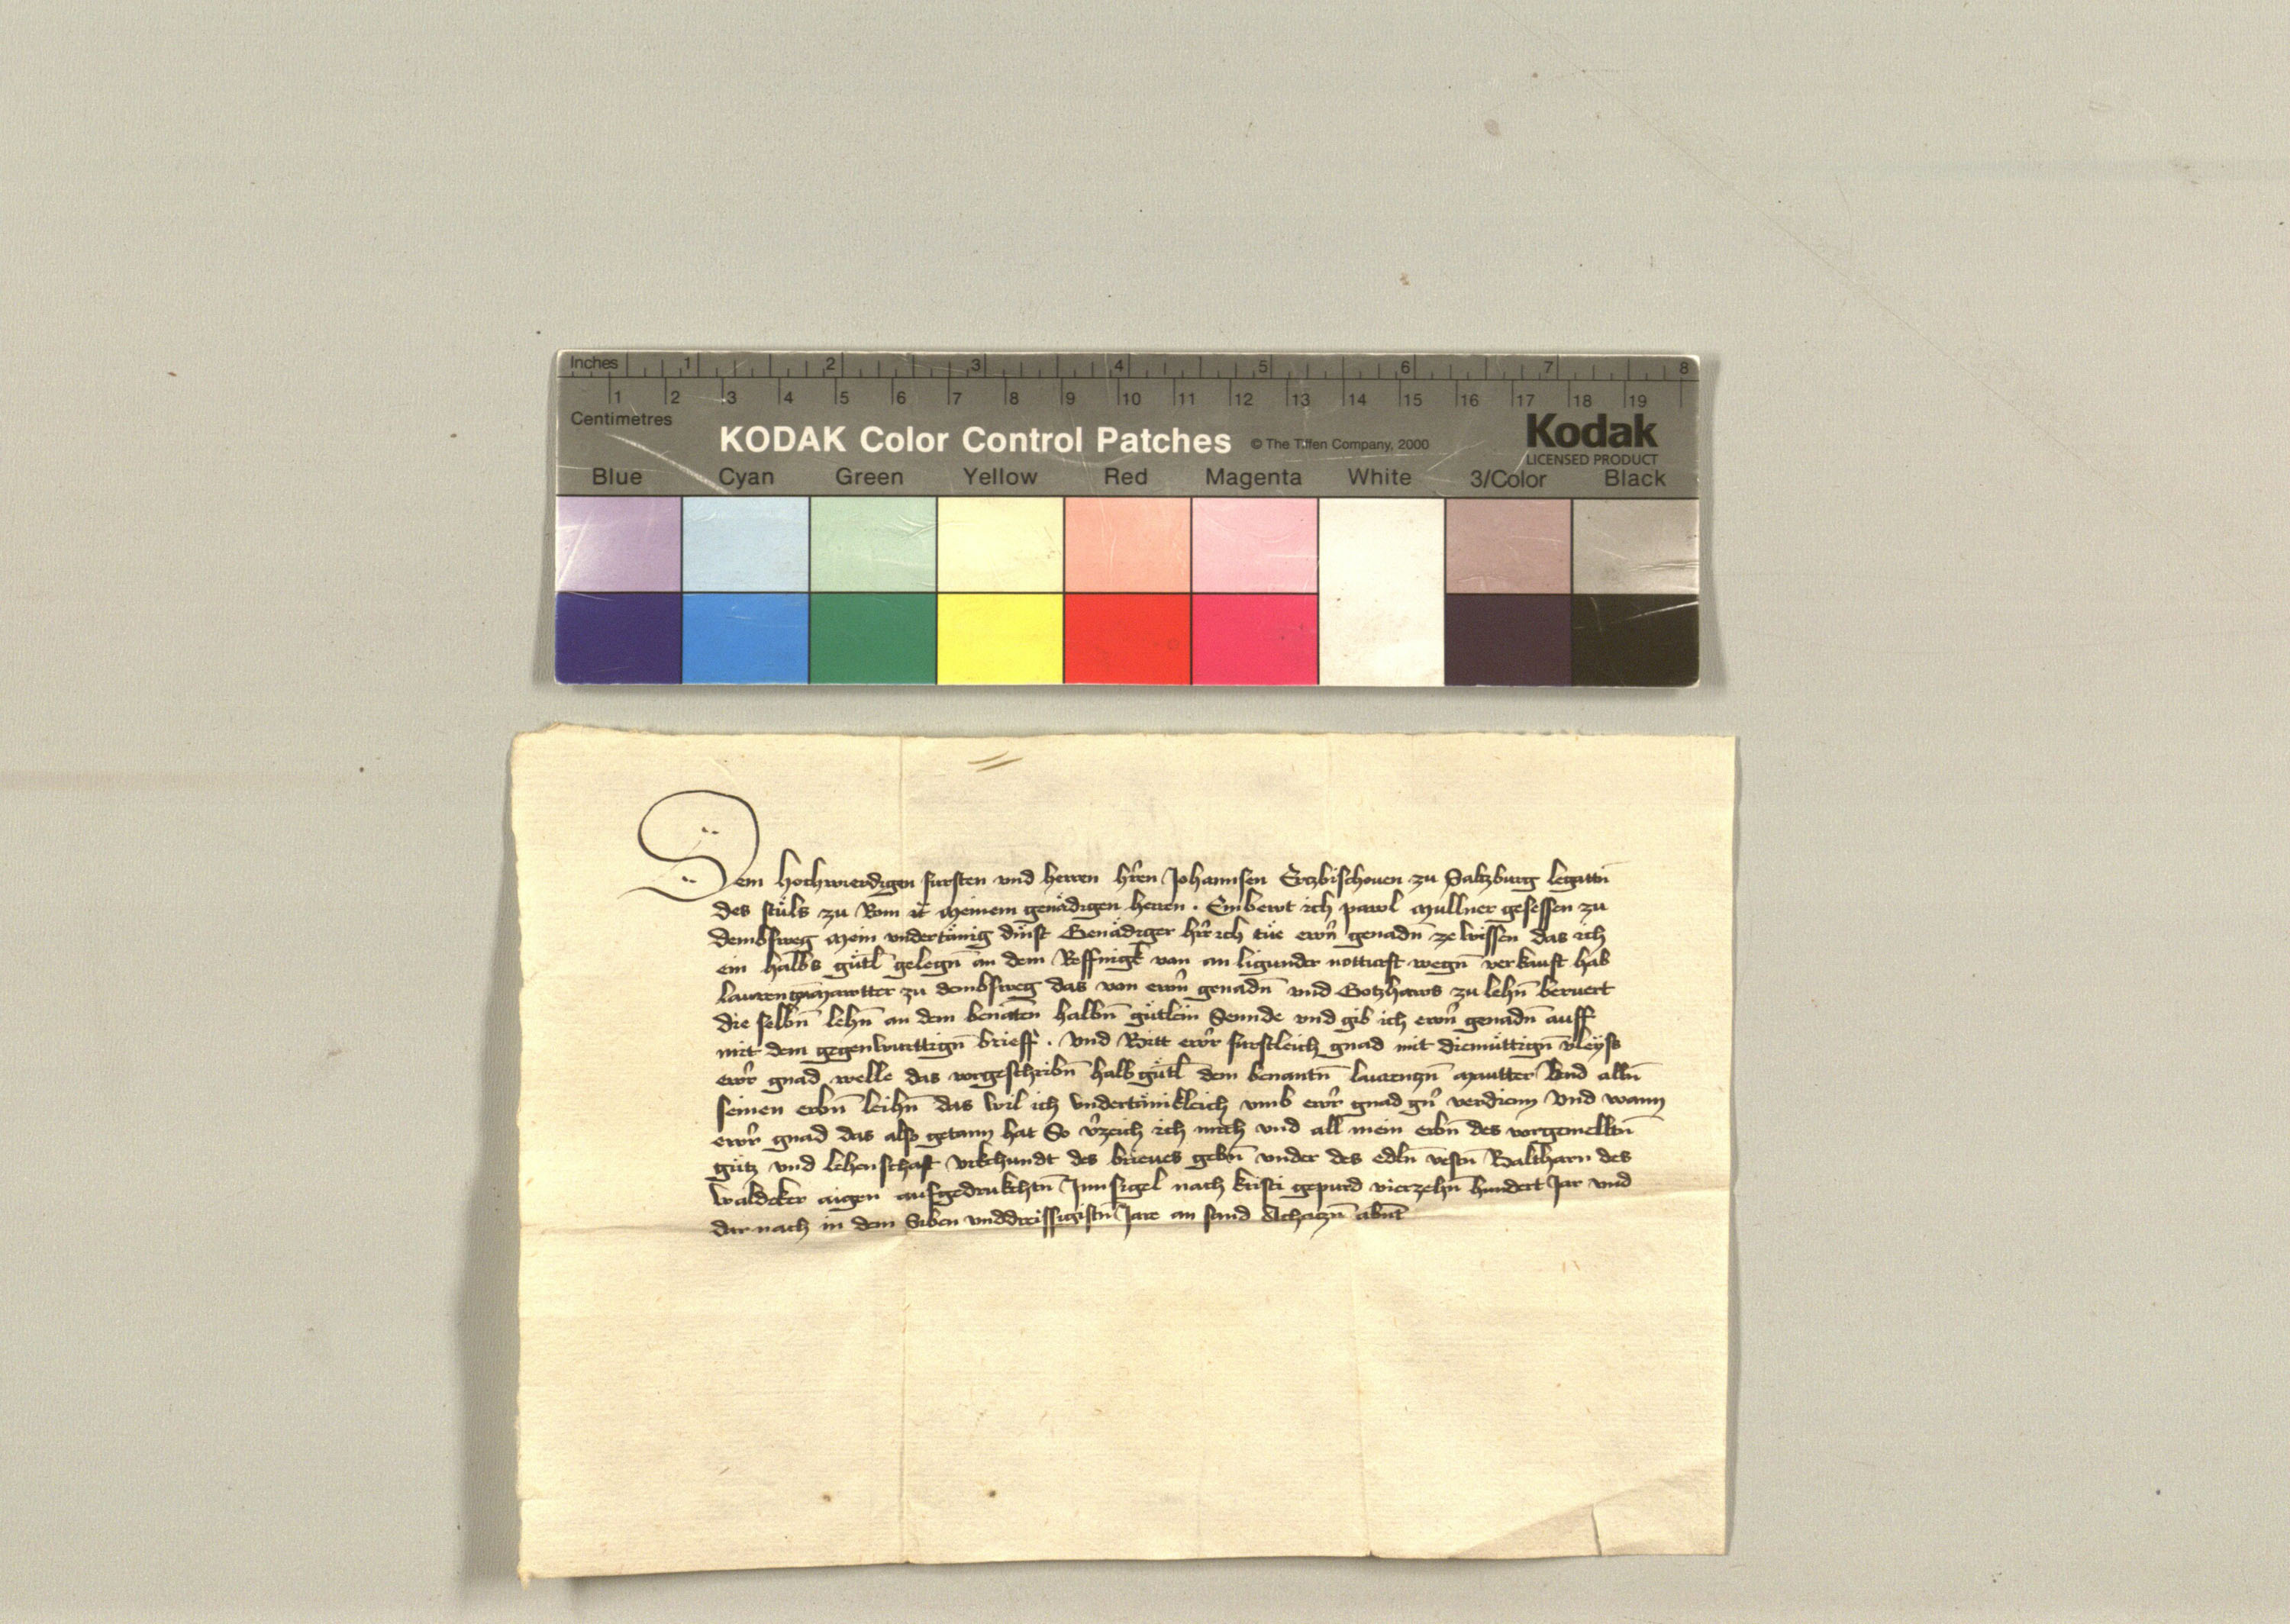 Inches 1 2 3 4 5 6 7 8
1 2 3 4 5 6 7 8 9 10 11 12 13 14 15 16 17 18 19
Centimetres
KODAK Color Control Patches © The Tiffen Company, 2000 Kodak
LICENSED PRODUCT
Blue Cyan Green Yellow Red Magenta White 3/Color Black
Dem hochwierdigen fursten vnd herren hr̄en Johannsen Ertzbischouen zu Saltzburg legattn̄
des stůls zu Rom meinem genädigen herren . Embewt ich pawl mullner gesessen zu
dembsweg mein vndertänig dinst Genädiger hr̄r ich tue ewrn̄ genadn̄ ze wissen das ich
ein halbs gůtl gelegn̄ an dem von an ligunder notturft wegn̄ verkauft hab
mautter zu dembsweg das von ewrn̄ genadn̄ vnd Gotzhaws zu lehn̄ beruert
die selbn̄ lehn̄ an dem benāten halbn̄ gůtlein Sennde vnd gib ich ewrn̄ genadn̄ auff
mit dem gegenwurttign̄ brieff . vnd Bitt ewr̄ furstleich gnad mit diemůttign̄ vleyss
ewr̄ gnad welle das vorgeschribn̄ halb gůtl dem benantn̄ laurenczn̄ mautter vnd alln̄
seinen erbn̄ leihn̄ das wil ich vndertänikleich vmb ewr̄ gnad gn̄ verdienn vnd wann
ewr̄ gnad das also getann hat So v̄zeich ich mich vnd all mein erbn̄ des vorgemelltn̄
gůtz vnd lehenschaft vrkchundt des brieues gebn̄ vnder des edln̄ vestn̄ des
waldeker aigen aufgedrukchtn̄ Innsigel nach kristi gepurd vierzehn̄ hundert Jar vnd
dar nach in dem Siben vnddreissigistn̄ Jare an sand Achaczn̄ abn̄t